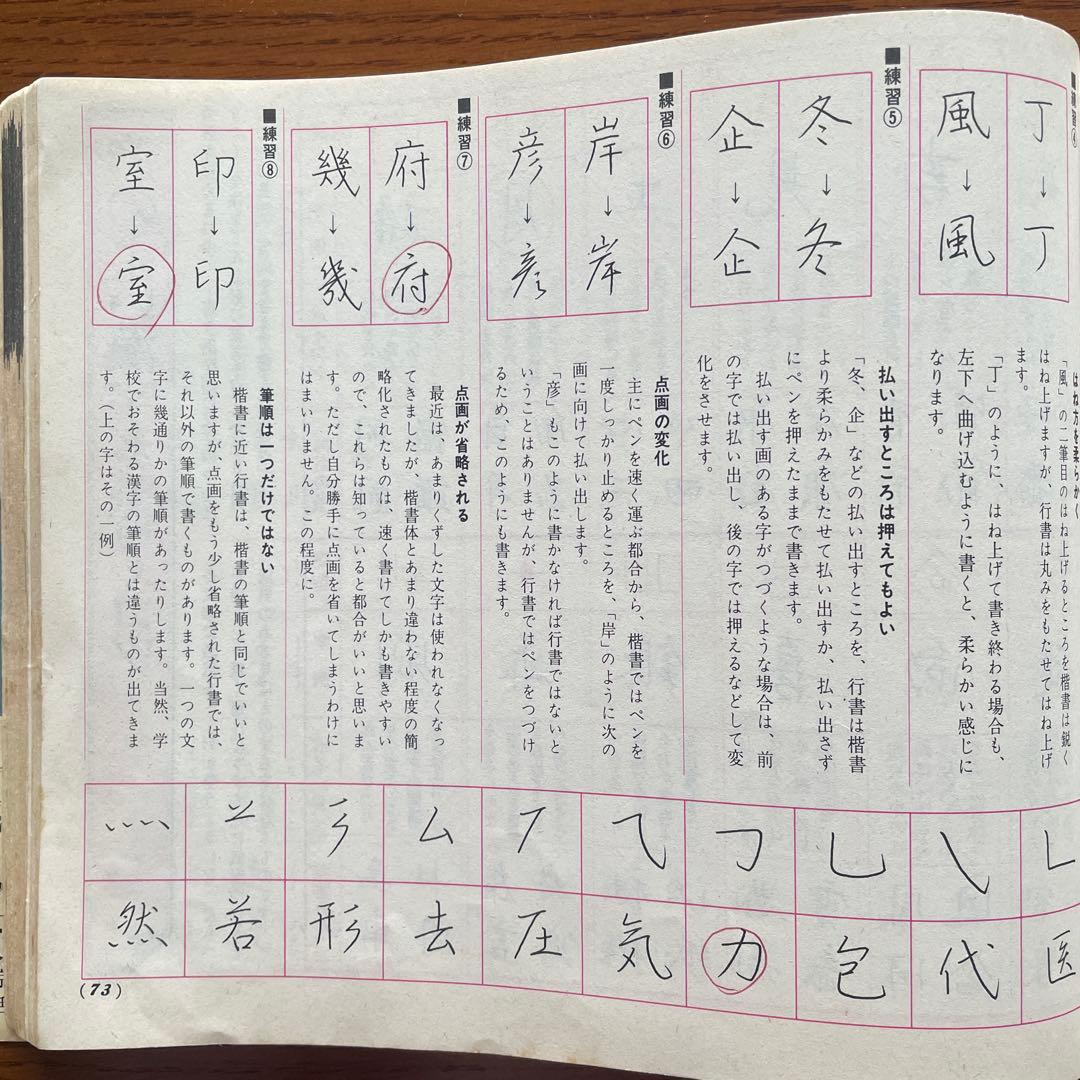 ■練習④
丁→丁
風→風
はね方を柔らかく
「風」の二筆目のはね上げるところを楷書は鋭く
はね上げますが、行書は丸みをもたせてはね上げ
ます。
「丁」のように、はね上げて書き終わる場合も、
左下へ曲げ込むように書くと、柔らかい感じに
なります。
■練習⑤
冬→冬
企→企
払い出すところは押えてもよい
「冬、企」などの払い出すところを、行書は楷書
より柔らかみをもたせて払い出すか、払い出さず
にペンを押えたままで書きます。
払い出す画のある字がつづくような場合は、前
の字では払い出し、後の字では押えるなどして変
化をさせます。
■練習⑥
岸→岸
彦→彦
点画の変化
主にペンを速く運ぶ都合から、楷書ではペンを
一度しっかり止めるところを、「岸」のように次の
画に向けて払い出します。
「彦」もこのように書かなければ行書ではないと
いうことはありませんが、行書ではペンをつづけ
るため、このようにも書きます。
■練習⑦
府→府
幾→幾
点画が省略される
最近は、あまりくずした文字は使われなくなっ
てきましたが、楷書体とあまり違わない程度の簡
略化されたものは、速く書けてしかも書きやすい
ので、これらは知っていると都合がいいと思いま
す。ただし自分勝手に点画を省いてしまうわけに
はまいりません。この程度に。
■練習⑧
印→印
室→室
筆順は一つだけではない
楷書に近い行書は、楷書の筆順と同じでいいと
思いますが、点画をもう少し省略された行書では、
それ以外の筆順で書くものがあります。一つの文
字に幾通りかの筆順があったりします。当然、学
校でおそわる漢字の筆順とは違うものが出てきま
す。（上の字はその一例）
医
代
包
力
気
圧
ム
去
形
若
然
(73)